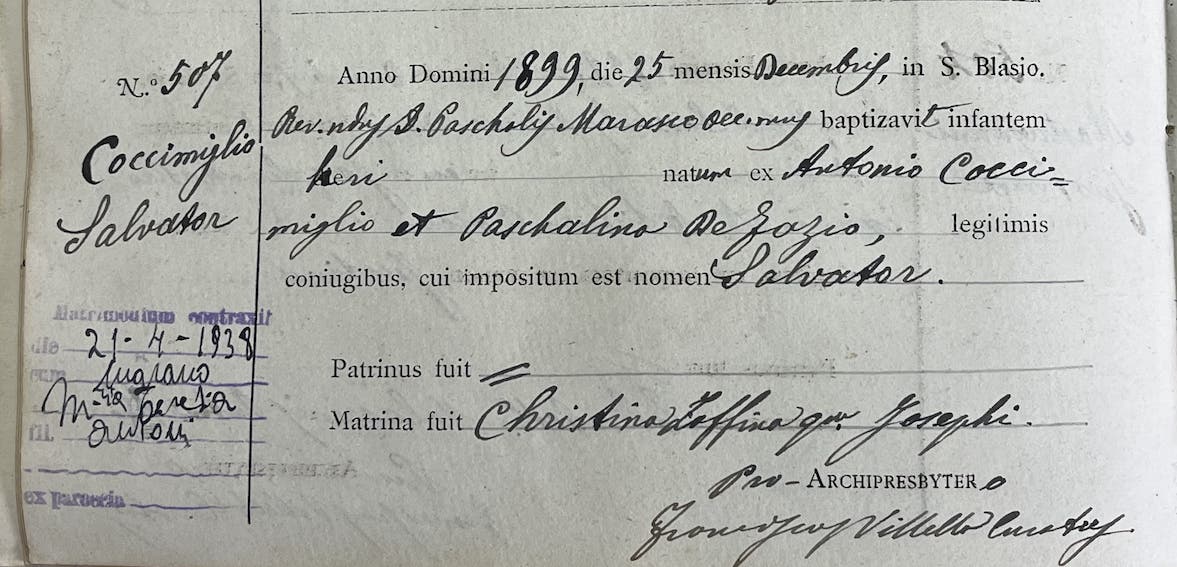 N.º 507
Coccimiglio
Salvator
Matrimonium contraxit
die 21-4-1938
cum Mugrano
M-ria Teresa
fil. Antonii
ex paroecia
Anno Domini 1899, die 25 mensis Decembris, in S. Blasio.
Rev.ndus D. Paschalis Marasco Oec.mus baptizavit infantem
heri natum ex Antonio Cocci=
miglio et Paschalina De Fazio, legitimis
coniugibus, cui impositum est nomen Salvator.
Patrinus fuit =
Matrina fuit Christina Zoffina qm. Josephi.
Pro-Archipresbytero
Franciscus Villella Curatus